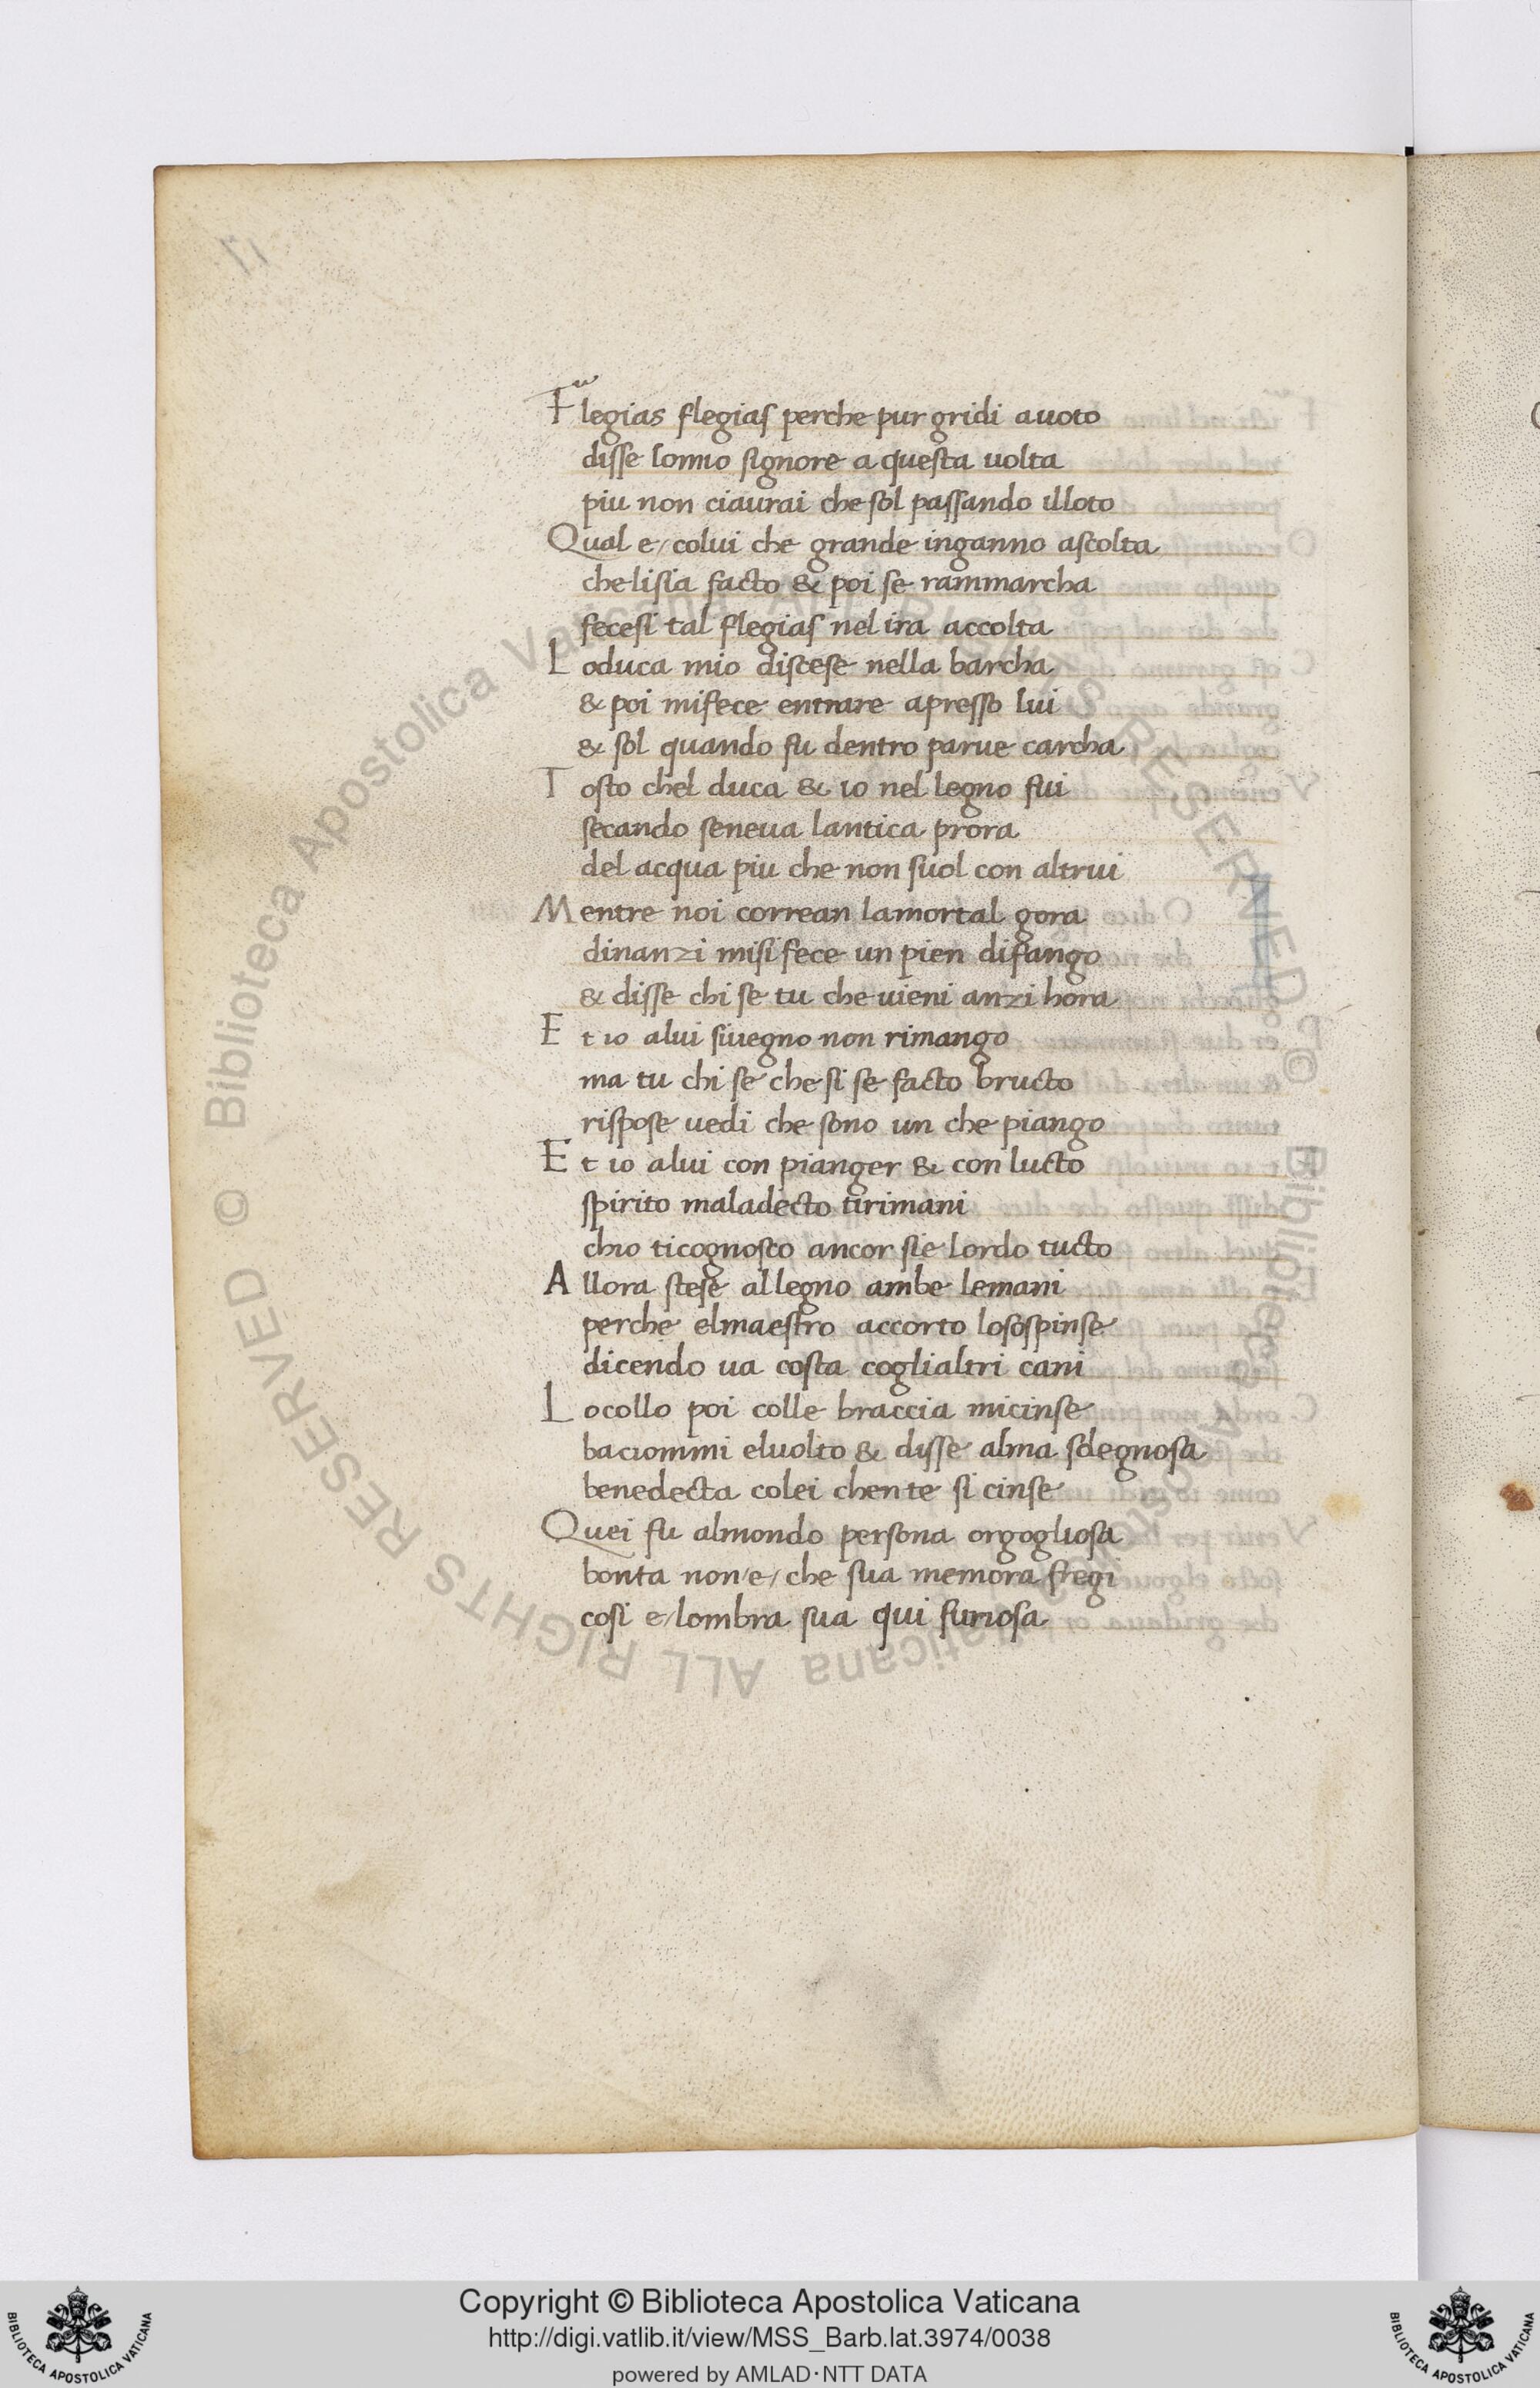 Flegias flegias perche pur gridi auoto
disse lomio signore a questa uolta
piu non ciaurai che sol passando illoto
Qual e/ colui che grande inganno ascolta
che lisia facto & poi se rammarcha
fecesi tal flegias nel ira accolta
Loduca mio discese nella barcha
& poi mifece entrare apresso lui
& sol quando fu dentro parue carcha
Tosto chel duca & io nel legno fui
secando seneua lantica prora
del acqua piu che non suol con altrui
Mentre noi correan lamortal gora
dinanzi misi fece un pien difango
& disse chi se tu che uieni anzi hora
Et io alui siuegno non rimango
ma tu chi se che si se facto bructo
rispose uedi che sono un che piango
Et io alui con pianger & con lucto
spirito maladecto tirimani
chio ticognosco ancor sie lordo tucto
Allora stese allegno ambe lemani
perche elmaestro accorto lososspinse
dicendo ua costa coglialtri cani
Locollo poi colle braccia micinse
baciommi eluolto & disse alma sdegnosa
benedecta colei chente si cinse
Quei fu almondo persona orgogliosa
bonta non/e/ che sua memora fregi
cosi e/lombra sua qui furiosa
Copyright © Biblioteca Apostolica Vaticana
http://digi.vatlib.it/view/MSS_Barb.lat.3974/0038
powered by AMLAD·NTT DATA
BIBLIOTECA APOSTOLICA VATICANA
BIBLIOTECA APOSTOLICA VATICANA
© Biblioteca Apostolica Vaticana ALL RIGHTS RESERVED © Biblioteca Apostolica Vaticana ALL RIGHTS RESERVED